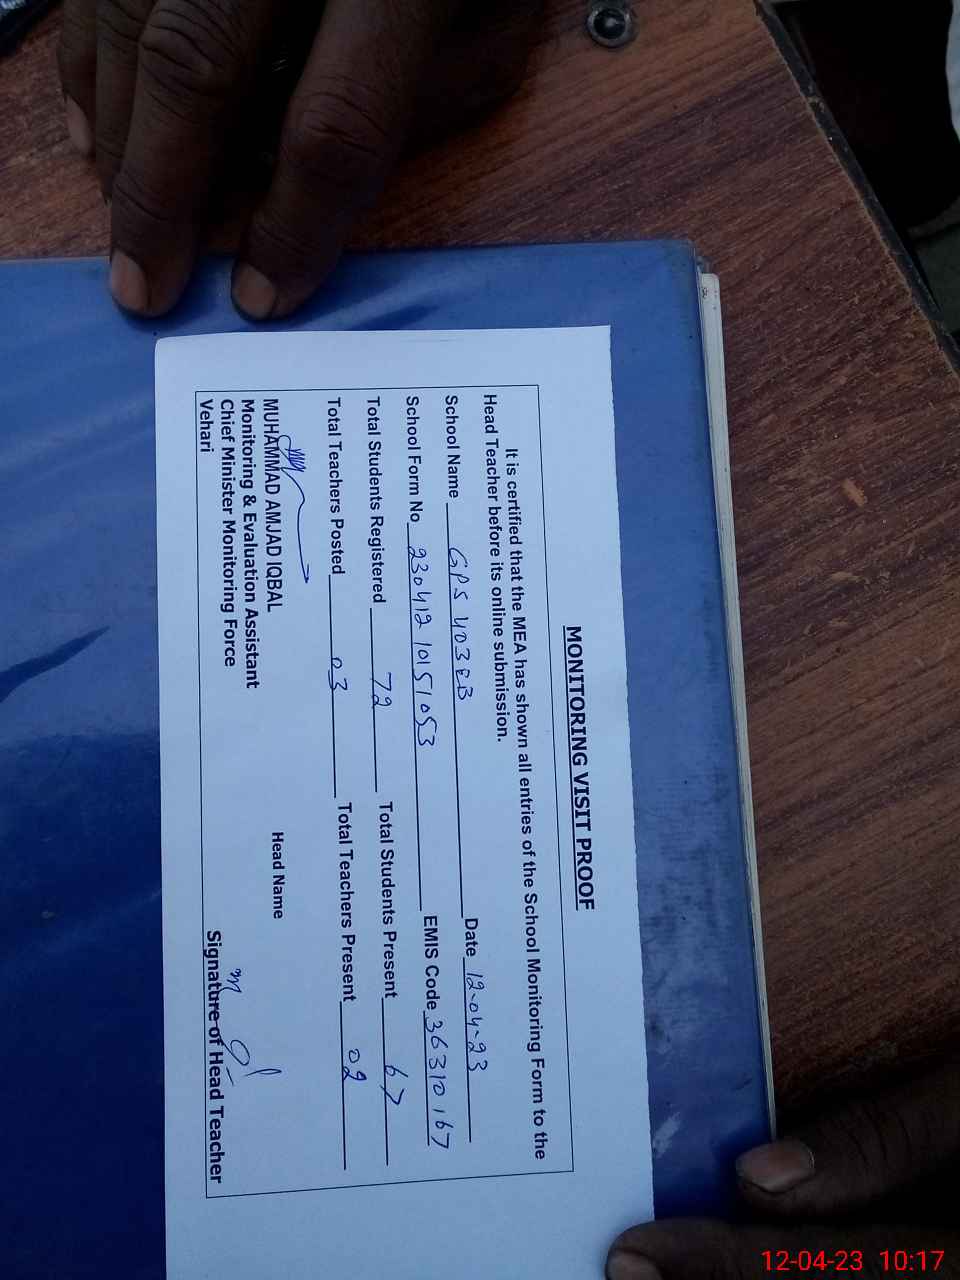 MONITORING VISIT PROOF
It is certified that the MEA has shown all entries of the School Monitoring Form to the
Head Teacher before its online submission.
School Name GPS 403 EB Date 12-04-23
School Form No 230412 1015 1053 EMIS Code 36310167
Total Students Registered 72 Total Students Present 67
Total Teachers Posted 03 Total Teachers Present 02
MUHAMMAD AMJAD IQBAL Head Name
Monitoring & Evaluation Assistant
Chief Minister Monitoring Force
Vehari Signature of Head Teacher
12-04-23 10:17